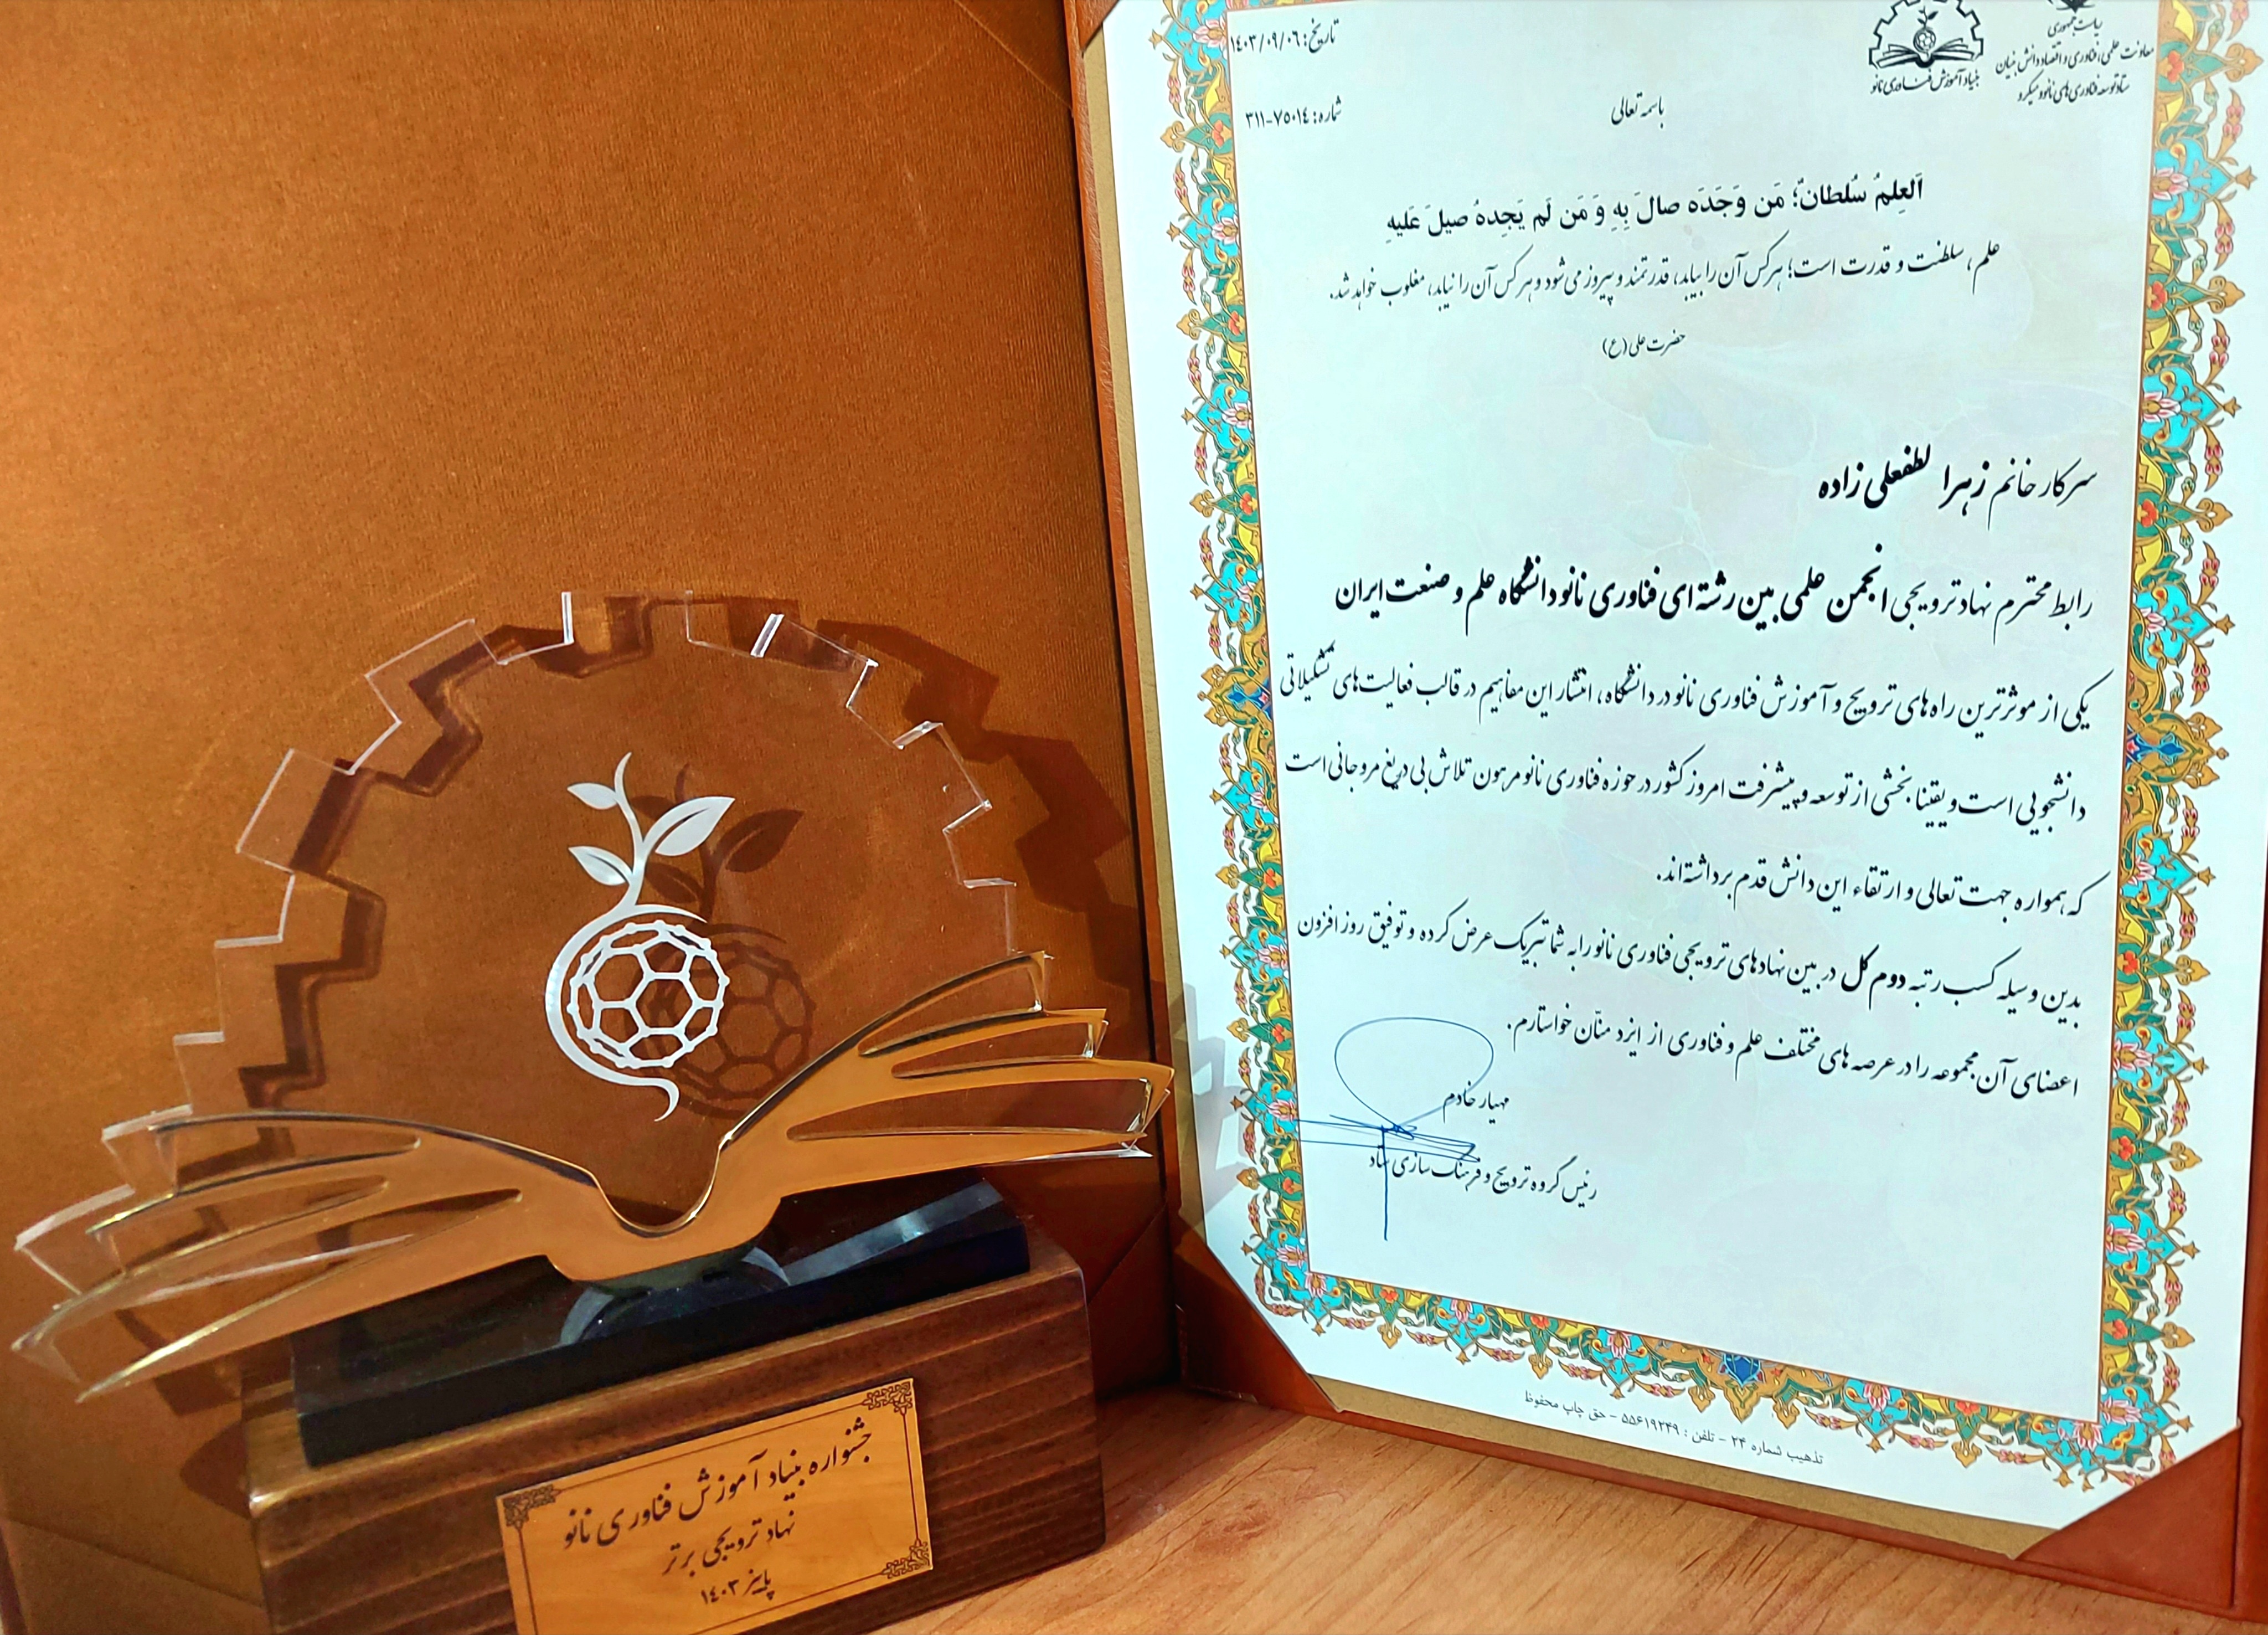 ریاست جمهوری
معاونت علمی، فناوری و اقتصاد دانش بنیان
ستاد توسعه فناوری‌های نانو و میکرو
بنیاد آموزش فناوری نانو
تاریخ: ۱٤۰۳/۰۹/۰٦
شماره: ۷۵۰۱٤-۳۱۱
باسمه تعالی
اَلعِلمُ سُلطانٌ؛ مَن وَجَدَه صالَ بِهِ وَ مَن لَم یَجِدهُ صیلَ عَلَیهِ
علم، سلطنت و قدرت است؛ هرکس آن را بیابد، قدرتمند و پیروز می‌شود و هرکس آن را نیابد، مغلوب خواهد شد.
حضرت علی (ع)
سرکار خانم زهرا لطفعلی زاده
رابط محترم نهاد ترویجی انجمن علمی بین رشته ای فناوری نانو دانشگاه علم و صنعت ایران
یکی از موثرترین راه های ترویج و آموزش فناوری نانو در دانشگاه، انتشار این مفاهیم در قالب فعالیت‌های تشکیلاتی
دانشجویی است و یقینا بخشی از توسعه و پیشرفت امروز کشور در حوزه فناوری نانو مرهون تلاش بی دریغ مروجانی است
که همواره جهت تعالی و ارتقاء این دانش قدم برداشته‌اند.
بدین وسیله کسب رتبه دوم کل در بین نهادهای ترویجی فناوری نانو را به شما تبریک عرض کرده و توفیق روز افزون
اعضای آن مجموعه را در عرصه های مختلف علم و فناوری از ایزد منّان خواستارم.
مهیار خادم
رئیس گروه ترویج و فرهنگ سازی ستاد
تذهیب شماره ۲۴ - تلفن : ۵۵۶۱۹۲۴۹ - حق چاپ محفوظ
جشنواره بنیاد آموزش فناوری نانو
نهاد ترویجی برتر
پاییز ۱٤۰۳